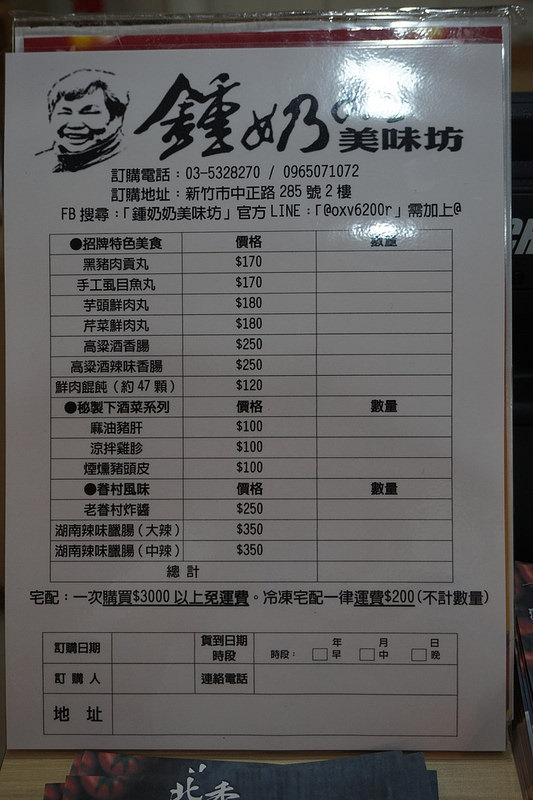 鍾奶奶
美味坊
訂購電話：03-5328270 / 0965071072
訂購地址：新竹市中正路 285 號 2 樓
FB 搜尋：「鍾奶奶美味坊」官方 LINE：「@oxv6200r」需加上@
●招牌特色美食 價格 數量
黑豬肉貢丸 $170
手工虱目魚丸 $170
芋頭鮮肉丸 $180
芹菜鮮肉丸 $180
高粱酒香腸 $250
高粱酒辣味香腸 $250
鮮肉餛飩（約 47 顆） $120
●秘製下酒菜系列 價格 數量
麻油豬肝 $100
涼拌雞胗 $100
煙燻豬頭皮 $100
●眷村風味 價格 數量
老眷村炸醬 $250
湖南辣味臘腸（大辣） $350
湖南辣味臘腸（中辣） $350
總 計
宅配：一次購買$3000 以上免運費。冷凍宅配一律運費$200(不計數量)
訂購日期 貨到日期時段 年 月 日
時段： 早 中 晚
訂 購 人 連絡電話
地 址